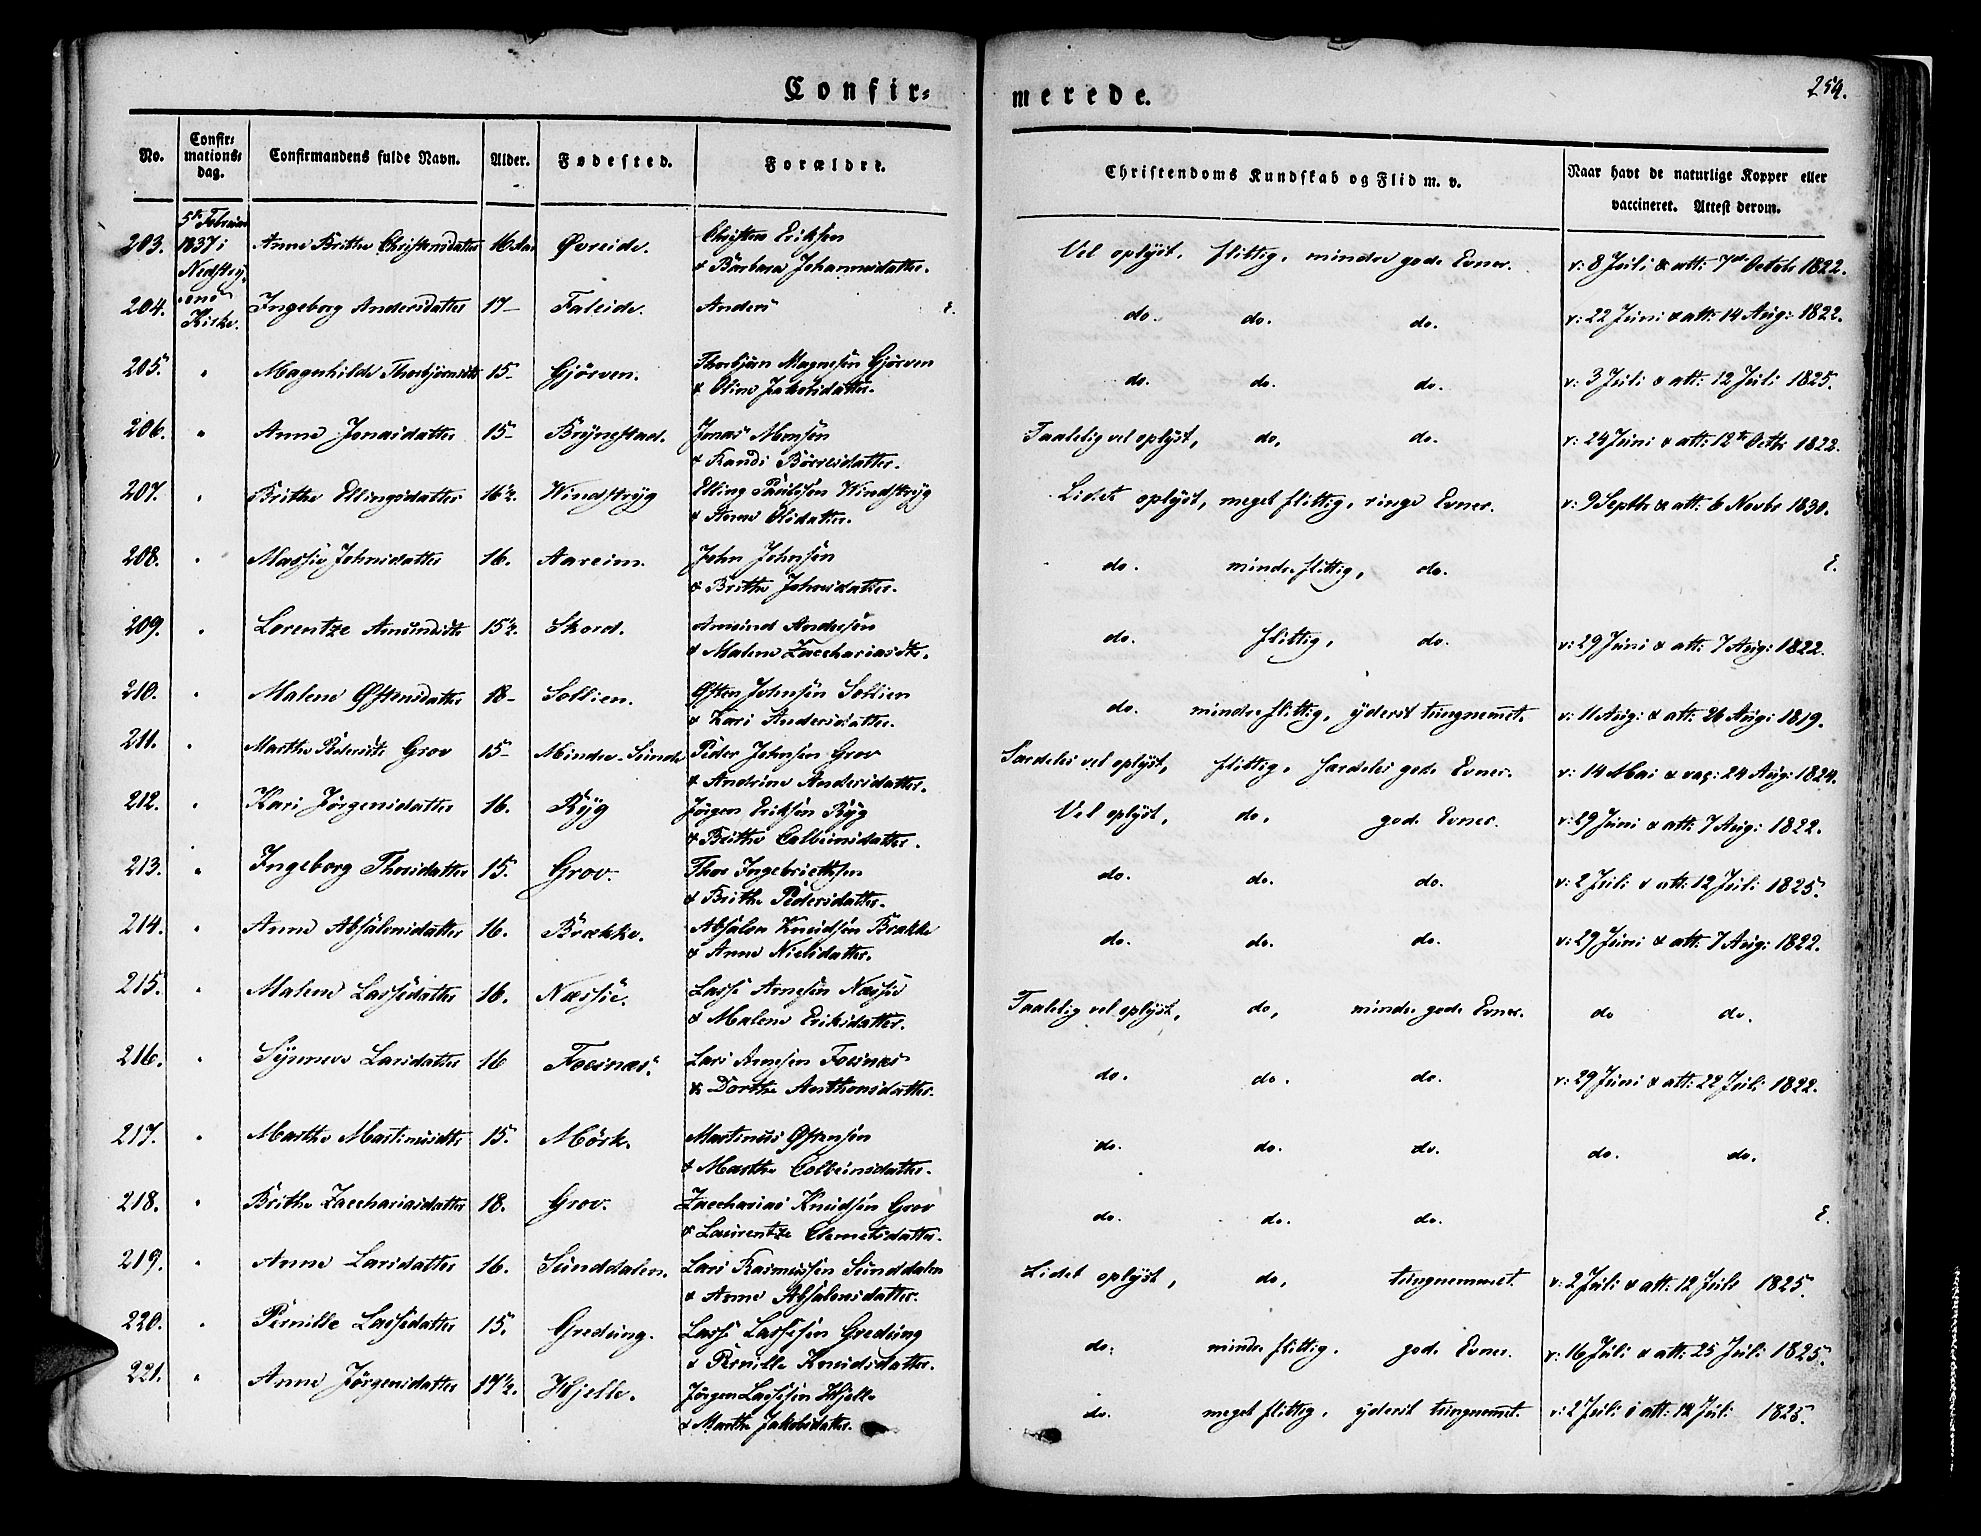 Confir-
merede.
254.
No.
Confir-
mations-
dag.
Confirmandens fulde Navn.
Alder.
Fødested.
Forældre.
Christendoms Kundskab og Flid m. v.
Naar havt de naturlige Kopper eller
vaccineret. Attest derom.
203. 1837 i Anne Brithe Christensdatter 16 Øvreide. Christen Eriksen
& Barbara Johannesdatter.
Vel oplÿst, flittig, mindre gode Evner. v: 8 Juli & att: 7de Octob 1822.
204. Kirke. Ingeborg Andersdatter 17- Faleide. Anders
do. do. do. v: 22 Juni & att: 14 Aug: 1822.
205. " Magnhilde Thorbjørnsdtr 15- Gjørven. Thorbjørn Magnesen Gjørven
& Oline Jakobsdatter.
do. do. do. v: 3 Juli & att: 12 Juli 1825.
206. " Anne Jonasdatter 15- Brÿnestad. Jonas Monsen
& Randi Børresdatter.
Taalelig vel oplÿst, do, do. v: 24 Juni & att: 12te Octbr 1822.
207. " Brithe Ellingsdatter 16½. Windstrÿg Elling Paulsen Windstrÿg
& Anne Olsdatter.
Lidet oplÿst, meget flittig, ringe Evner. v: 9 Septbr & att: 6 Novbr 1830.
208. " Massie Johnsdatter 16. Aareim. John Johnsen
& Brithe Johnsdatter.
do. mindre flittig, do.
209. " Lorentze Amundsdtr 15½. Skord. Amund Andersen
& Malene Zacchariasdtr.
do. flittig, do. v: 29 Juni & att: 7 Aug: 1822.
210. " Malene Østensdatter 18- Sollien. Østen Johnsen Sollien
& Kari Andersdatter.
do. mindre flittig, ÿderst tungnemmet. v: 11 Aug: & att: 26 Aug: 1819.
211. " Marthe Pedersdtr Grov 15- Mindre-Sunde Peder Johnsen Grov
& Andrine Andersdatter.
Særdeles vel oplÿst, flittig, særdeles gode Evner. v: 14 Mai & vac: 24 Aug: 1824.
212. " Kari Jørgensdatter 16. Rÿg Jørgen Eriksen Rÿg
& Brithe Colbeinsdatter.
Vel oplÿst, do, gode Evner. v: 29 Juni & att: 7 Aug: 1822.
213. " Ingeborg Thorsdatter 15. Grov. Thor Ingebriethsen
& Brithe Pedersdatter.
do. do. do. v: 2 Juli & att: 12 Juli 1825.
214. " Anne Absalonsdatter 16. Brække. Absalon Knudsen Brække
& Anne Nielsdatter.
do. do. do. v: 29 Juni & att: 7 Aug: 1822.
215. " Malene Lassedatter 16. Næssie. Lasse Arnesen Næssie
& Malene Eriksdatter.
Taalelig vel oplÿst, do, mindre gode Evner. do do.
216. " Sÿnneve Larsdatter 16 Foesnæs. Lars Arnesen Foesnæs
& Dorthe Anthonsdatter.
do. do. do. v: 29 Juni & att: 22 Juli 1822.
217. " Marthe Martinusdtr 15. Mørk. Martinus Østensen
& Marthe Colbeinsdatter.
do. do. do. do. do.
218. " Brithe Zacchariasdatter 18. Grov. Zaccharias Knudsen Grov
& Laurentze Clemetsdatter.
do. do. do.
219. " Anne Larsdatter 16. Sunddalen. Lars Rasmussen Sunddalen
& Anne Absalonsdatter.
Lidet oplÿst, do, tungnemmet. v: 2 Juli & att: 12 Juli 1825.
220. " Pernille Lassedatter 15. Gredung. Lasse Lassesen Gredung
& Pernille Knudsdatter.
do: mindre flittig. gode Evner. v: 16 Juli & att: 25 Juli 1825.
221. " Anne Jørgensdatter 17½. Hjelle. Jørgen Lassesen Hjelle
& Marthe Jakobsdatter.
do. meget flittig, ÿderst tungnemmet. v: 2 Juli & att: 12 Juli 1825.